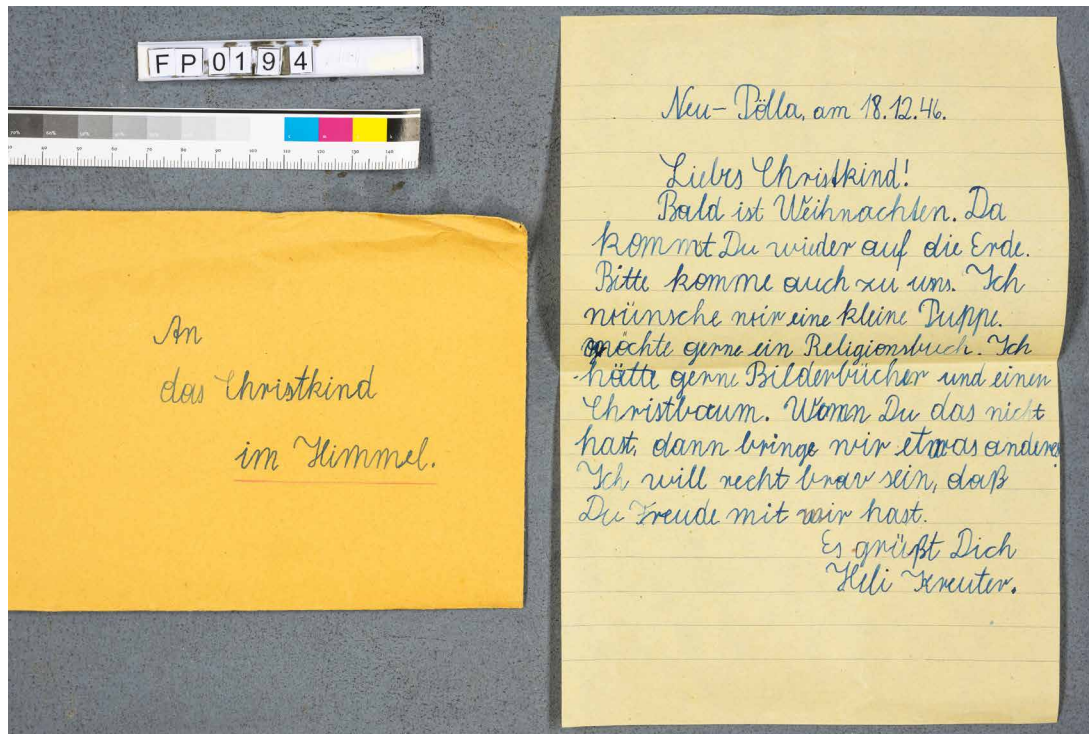 FP0194
An
das Christkind
im Himmel.
Neu-Pölla, am 18.12.46.
Liebes Christkind!
Bald ist Weihnachten. Da
kommt Du wieder auf die Erde.
Bitte komme auch zu uns. Ich
wünsche mir eine kleine Puppe.
möchte gerne ein Religionsbuch. Ich
hätte gerne Bilderbücher und einen
Christbaum. Wenn Du das nicht
hast, dann bringe mir etwas anderes
Ich will recht brav sein, daß
Du Freude mit mir hast.
Es grüßt Dich
Heli Kreuter.